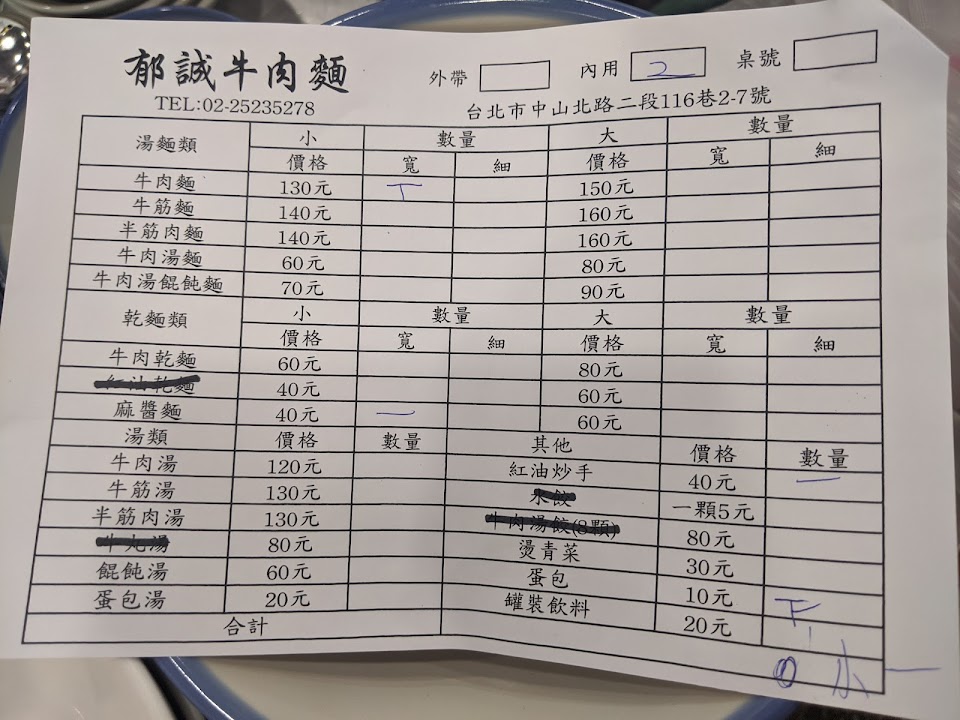 郁誠牛肉麵 外帶 內用 2 桌號
TEL:02-25235278 台北市中山北路二段116巷2-7號
湯麵類 小 數量 大 數量
價格 寬 細 價格 寬 細
牛肉麵 130元 丅 150元
牛筋麵 140元 160元
半筋肉麵 140元 160元
牛肉湯麵 60元 80元
牛肉湯餛飩麵 70元 90元
乾麵類 小 數量 大 數量
價格 寬 細 價格 寬 細
牛肉乾麵 60元 80元
紅油乾麵 40元 60元
麻醬麵 40元 一 60元
湯類 價格 數量 其他 價格 數量
牛肉湯 120元 紅油炒手 40元 一
牛筋湯 130元 水餃 一顆5元
半筋肉湯 130元 牛肉湯餃(8顆) 80元
牛丸湯 80元 燙青菜 30元
餛飩湯 60元 蛋包 10元 下
蛋包湯 20元 罐裝飲料 20元
合計
小一